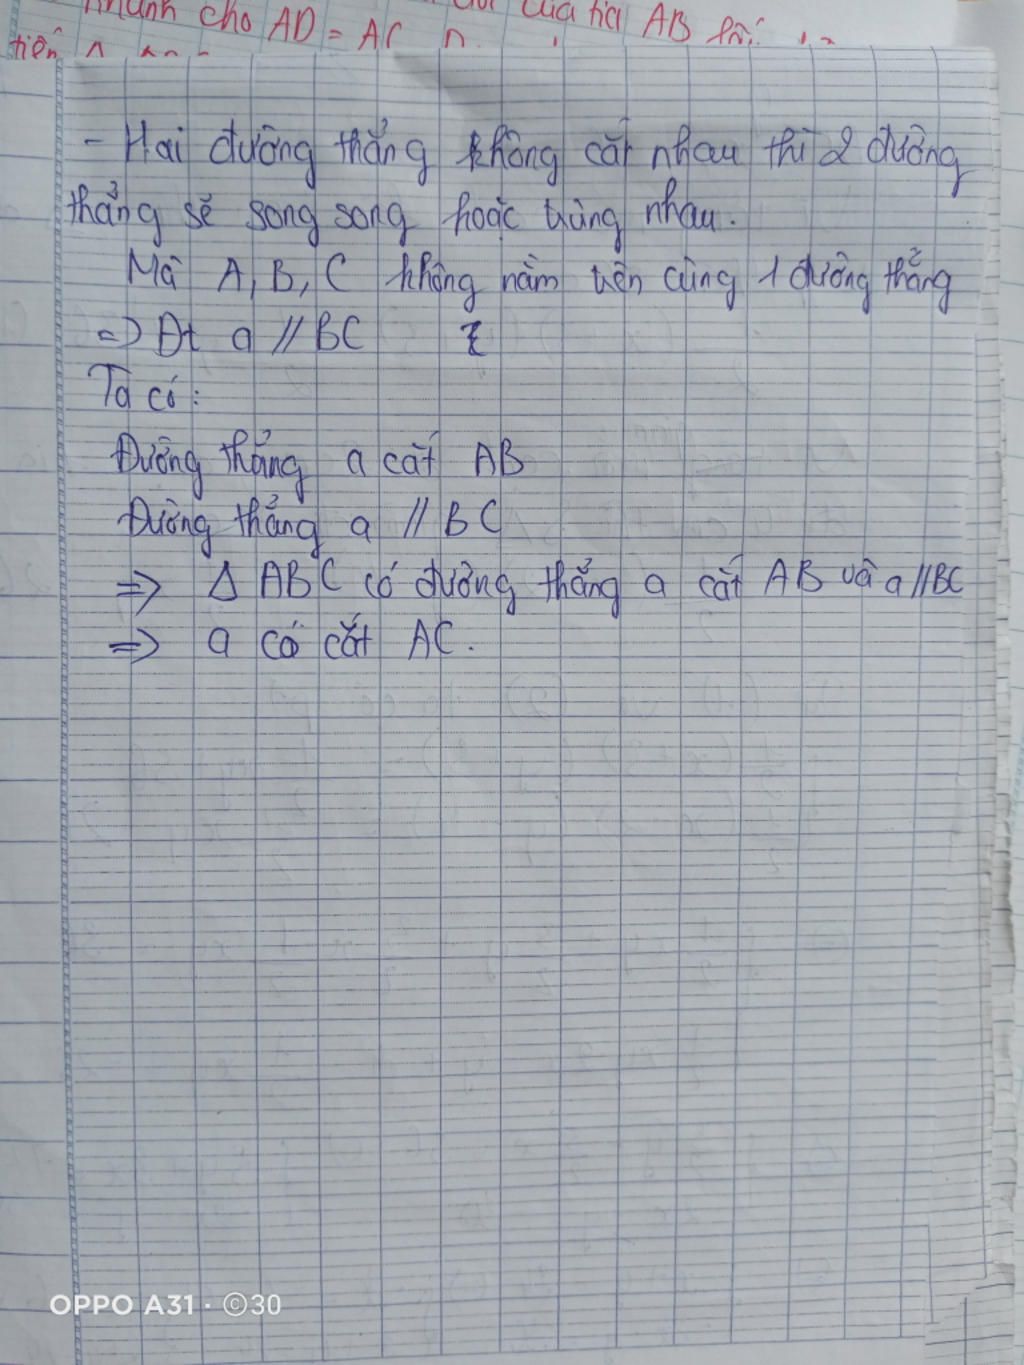 nhánh cho AD = AC của tia AB
tiên
- Hai đường thẳng không cắt nhau thì 2 đường
thẳng sẽ song song hoặc trùng nhau.
Mà A, B, C không nằm trên cùng 1 đường thẳng
=> Đt a // BC
Ta có:
Đường thẳng a cắt AB
Đường thẳng a // BC
=> Δ ABC có đường thẳng a cắt AB và a // BC
=> a có cắt AC.
OPPO A31 · ©30